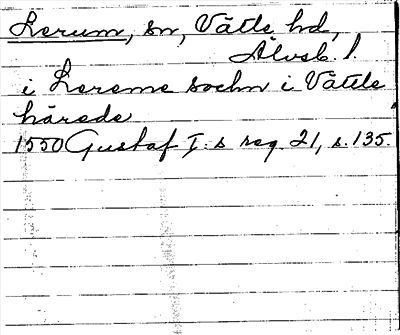 Lerum, sn, Vättle hd,
Älvsb. l.
i Lereme sochn i Vättle
härede
1550 Gustaf I:s reg. 21, s. 135.